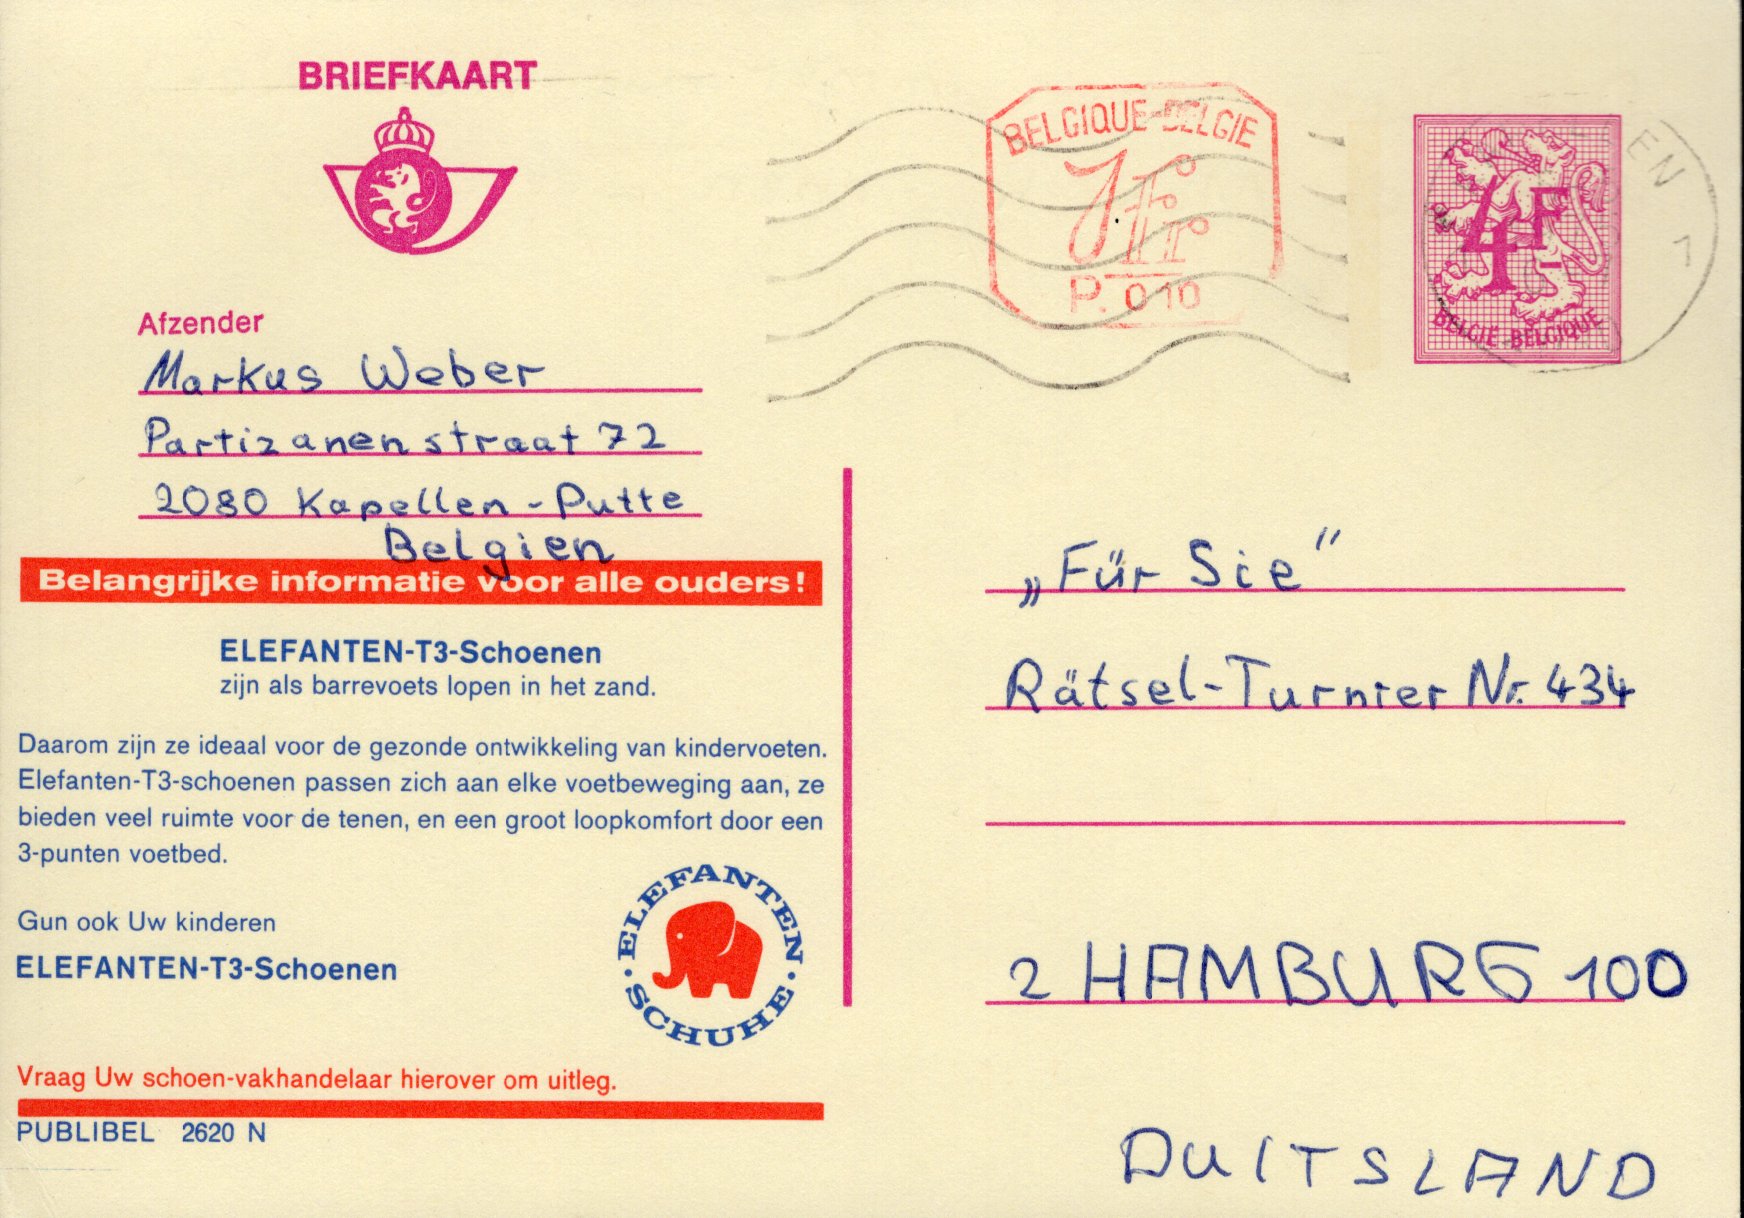 BRIEFKAART
BELGIQUE-BELGIE
1F
P. 010
4F
BELGIË-BELGIQUE
EN 1
Afzender
Markus Weber
Partizanenstraat 72
2080 Kapellen-Putte
Belgien
Belangrijke informatie voor alle ouders!
ELEFANTEN-T3-Schoenen
zijn als barrevoets lopen in het zand.
Daarom zijn ze ideaal voor de gezonde ontwikkeling van kindervoeten.
Elefanten-T3-schoenen passen zich aan elke voetbeweging aan, ze
bieden veel ruimte voor de tenen, en een groot loopkomfort door een
3-punten voetbed.
Gun ook Uw kinderen
ELEFANTEN-T3-Schoenen
ELEFANTEN
SCHUHE
Vraag Uw schoen-vakhandelaar hierover om uitleg.
PUBLIBEL 2620 N
„Für Sie“
Rätsel-Turnier Nr. 434
2 HAMBURG 100
DUITSLAND